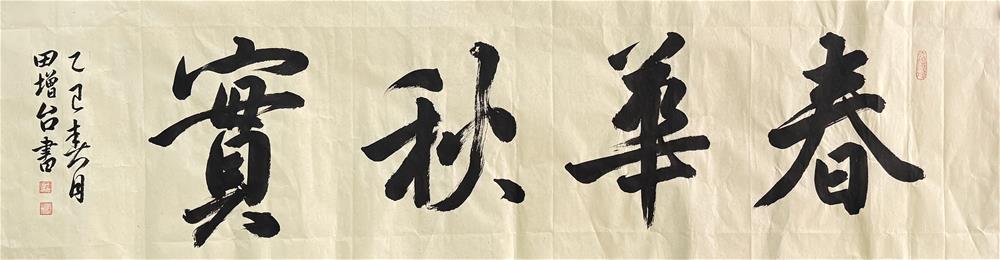 春華秋實
乙巳春月
田增台書